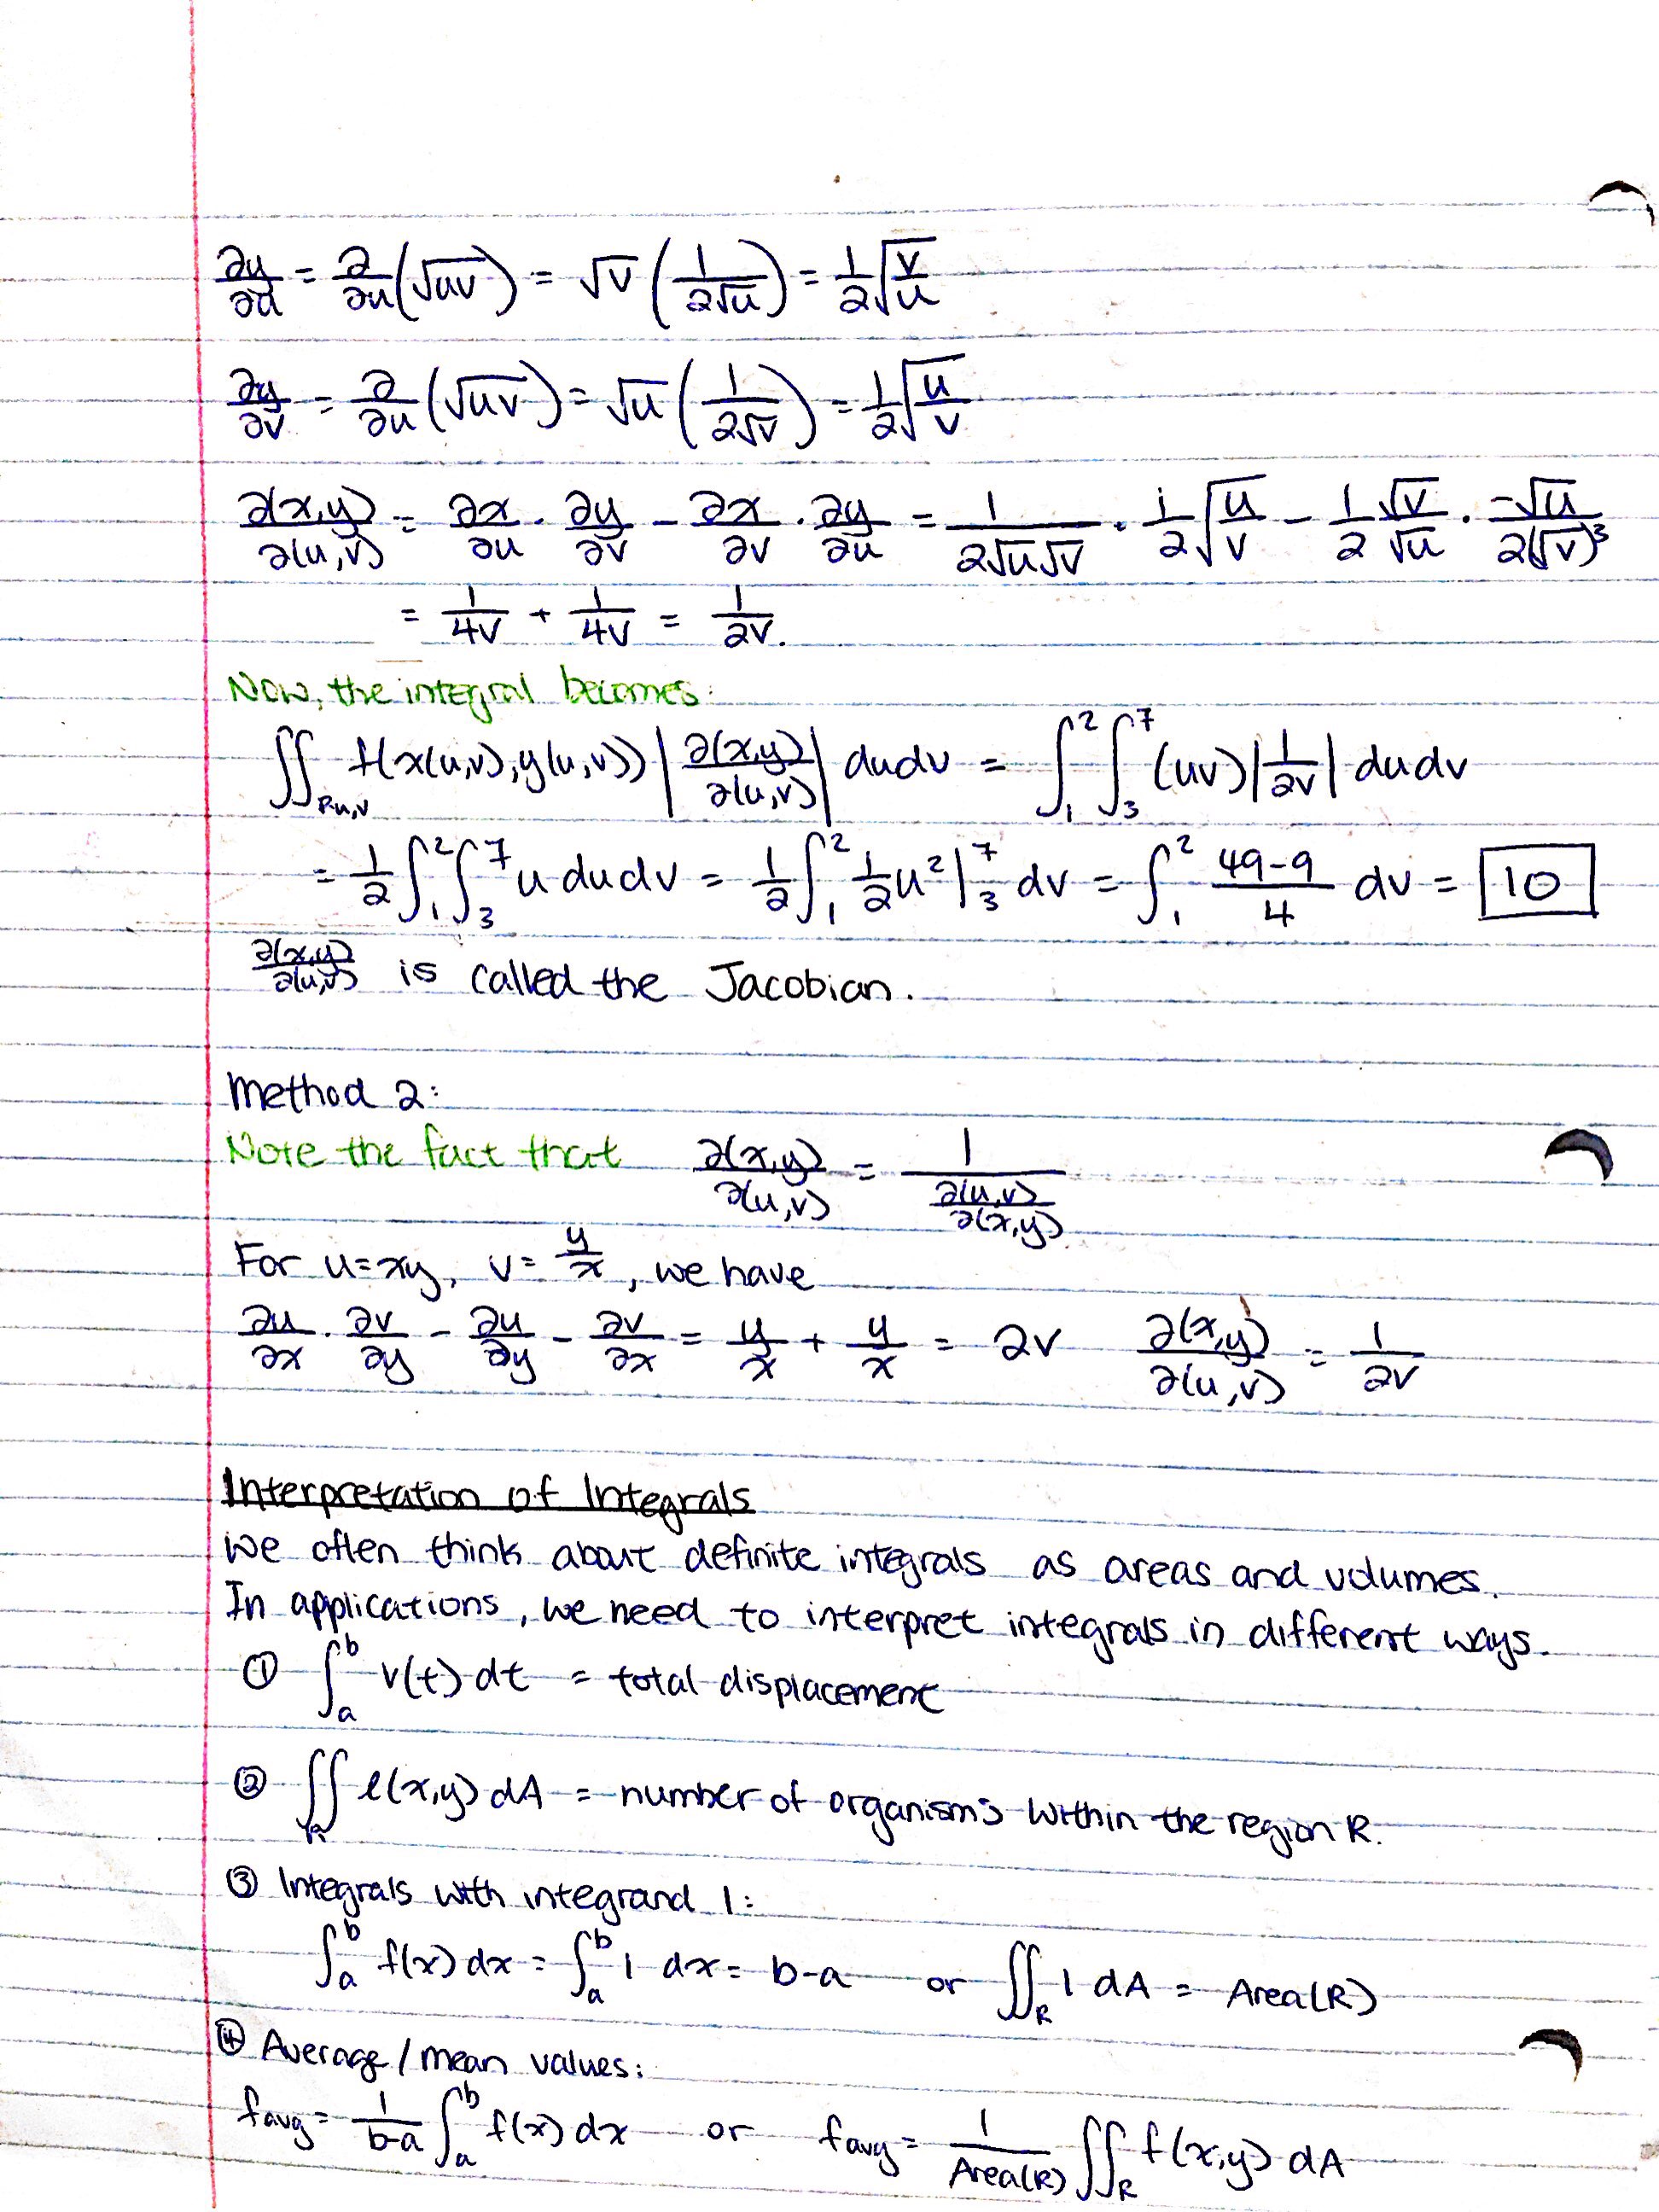 ∂y/∂u = ∂/∂u (√uv) = √v (1/(2√u)) = 1/2 √(v/u)
∂y/∂v = ∂/∂u (√uv) = √u (1/(2√v)) = 1/2 √(u/v)
∂(x,y)/∂(u,v) = ∂x/∂u · ∂y/∂v - ∂x/∂v · ∂y/∂u = 1/(2√u√v) · 1/2 √(u/v) - 1/2 √v/√u · -√u/(2(√v)³)
= 1/4v + 1/4v = 1/2v.
Now, the integral becomes:
∬_{Ru,v} f(x(u,v), y(u,v)) |∂(x,y)/∂(u,v)| du dv = ∫₁² ∫₃⁷ (uv) |1/2v| du dv
= 1/2 ∫₁² ∫₃⁷ u du dv = 1/2 ∫₁² 1/2 u² |₃⁷ dv = ∫₁² (49-9)/4 dv = 10
∂(x,y)/∂(u,v) is called the Jacobian.
Method 2:
Note the fact that ∂(x,y)/∂(u,v) = 1/(∂(u,v)/∂(x,y))
For u=xy, v= y/x, we have
∂u/∂x · ∂v/∂y - ∂u/∂y - ∂v/∂x = y/x + y/x = 2v ∂(x,y)/∂(u,v) = 1/2v
Interpretation of Integrals
We often think about definite integrals as areas and volumes.
In applications, we need to interpret integrals in different ways.
① ∫ₐᵇ v(t) dt = total displacement
② ∬_R l(x,y) dA = number of organisms within the region R.
③ Integrals with integrand 1:
∫ₐᵇ f(x) dx = ∫ₐᵇ 1 dx = b-a or ∬_R 1 dA = Area(R)
④ Average / mean values:
f avg = 1/(b-a) ∫ₐᵇ f(x) dx or f avg = 1/Area(R) ∬_R f(x,y) dA